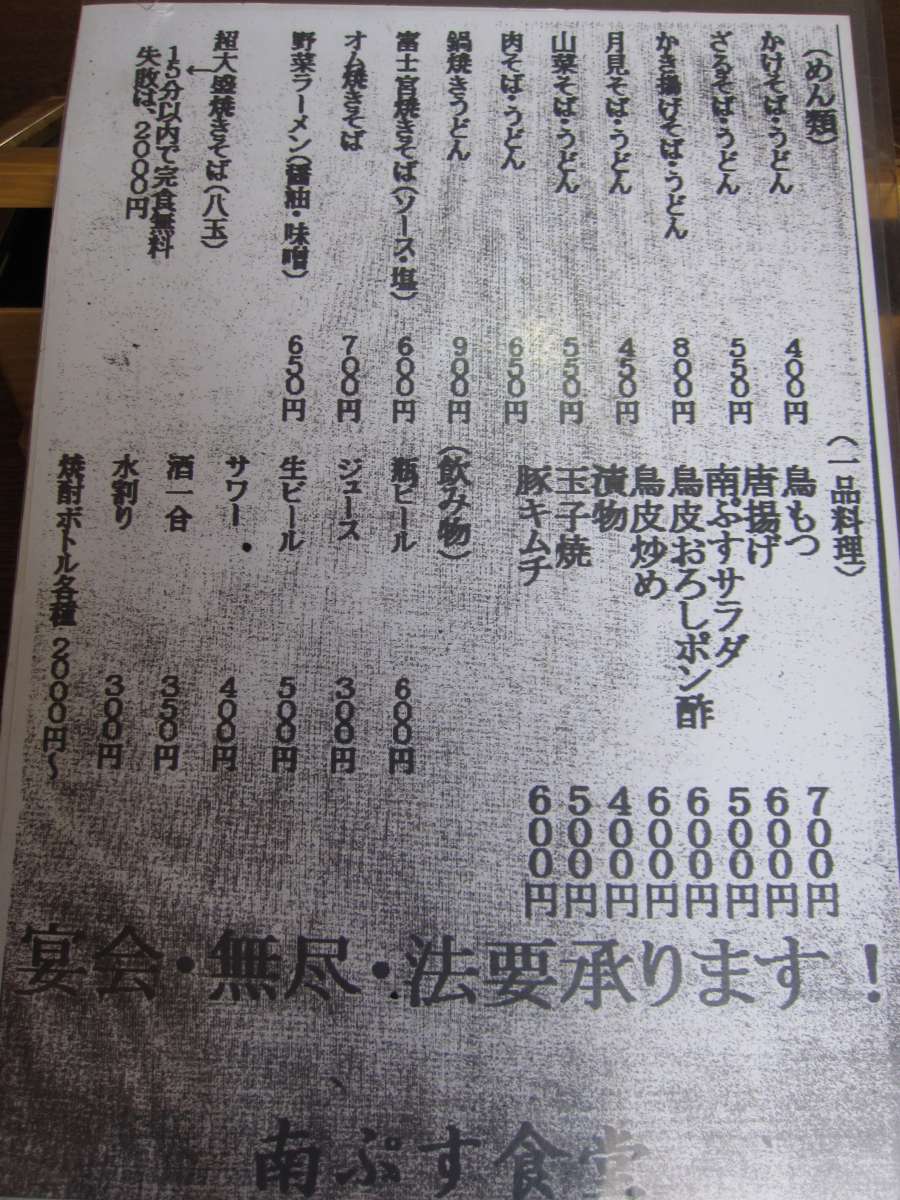 （めん類）
かけそば・うどん 400円
ざるそば・うどん 550円
かき揚げそば・うどん 800円
月見そば・うどん 450円
山菜そば・うどん 550円
肉そば・うどん 650円
鍋焼きうどん 900円
富士宮焼きそば（ソース・塩） 600円
オム焼きそば 700円
野菜ラーメン（醤油・味噌） 650円
超大盛焼きそば（八玉）
↓
15分以内で完食無料
失敗は、2000円
（一品料理）
鳥もつ 700円
唐揚げ 600円
南ぷすサラダ 500円
鳥皮おろしポン酢 600円
鳥皮炒め 600円
漬物 400円
玉子焼 500円
豚キムチ 600円
（飲み物）
瓶ビール 600円
ジュース 300円
生ビール 500円
サワー 400円
酒一合 350円
水割り 300円
焼酎ボトル各種 2000円～
宴会・無尽・法要承ります！
南ぷす食堂